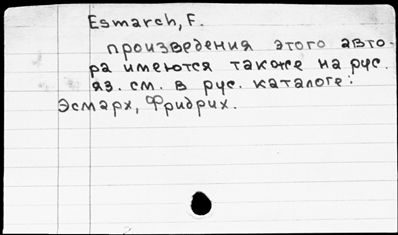 Esmarch, F.
произведения этого авто-
ра имеются также на рус.
яз. см. в рус. каталоге:
Эсмарх, Фридрих.